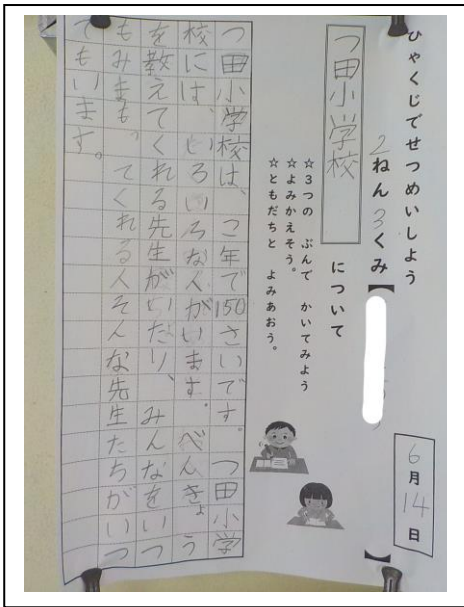 ひゃくじでせつめいしよう
2ねん3くみ【 】
6月14日
つ田小学校 について
☆3つの ぶんで かいてみよう
☆よみかえそう。
☆ともだちと よみあおう。
つ田小学校は、こ年で150さいです。つ田小学
校には、いろいろな人がいます。べんきょう
を教えてくれる先生がいたり、みんなをいつ
もみまもってくれる人そんな先生たちがいつ
でもいます。